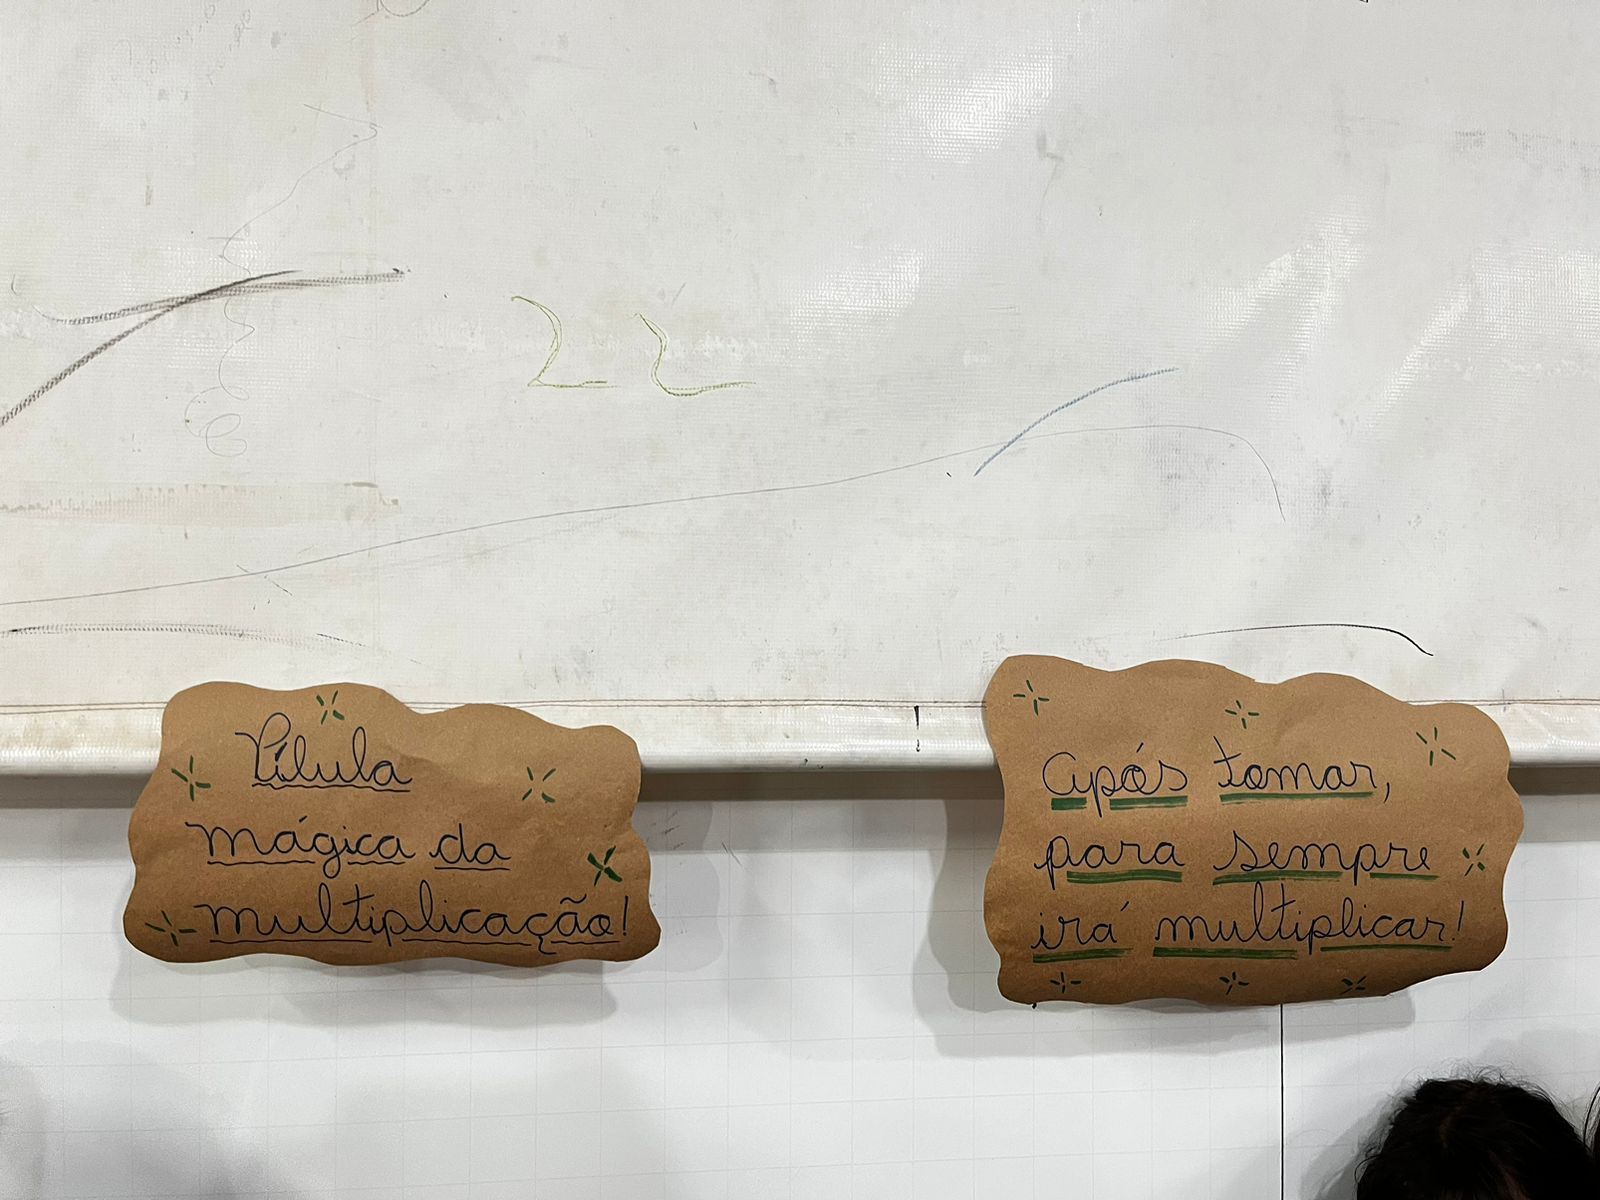 22
Pílula
mágica da
multiplicação!
Após tomar,
para sempre
irá multiplicar!